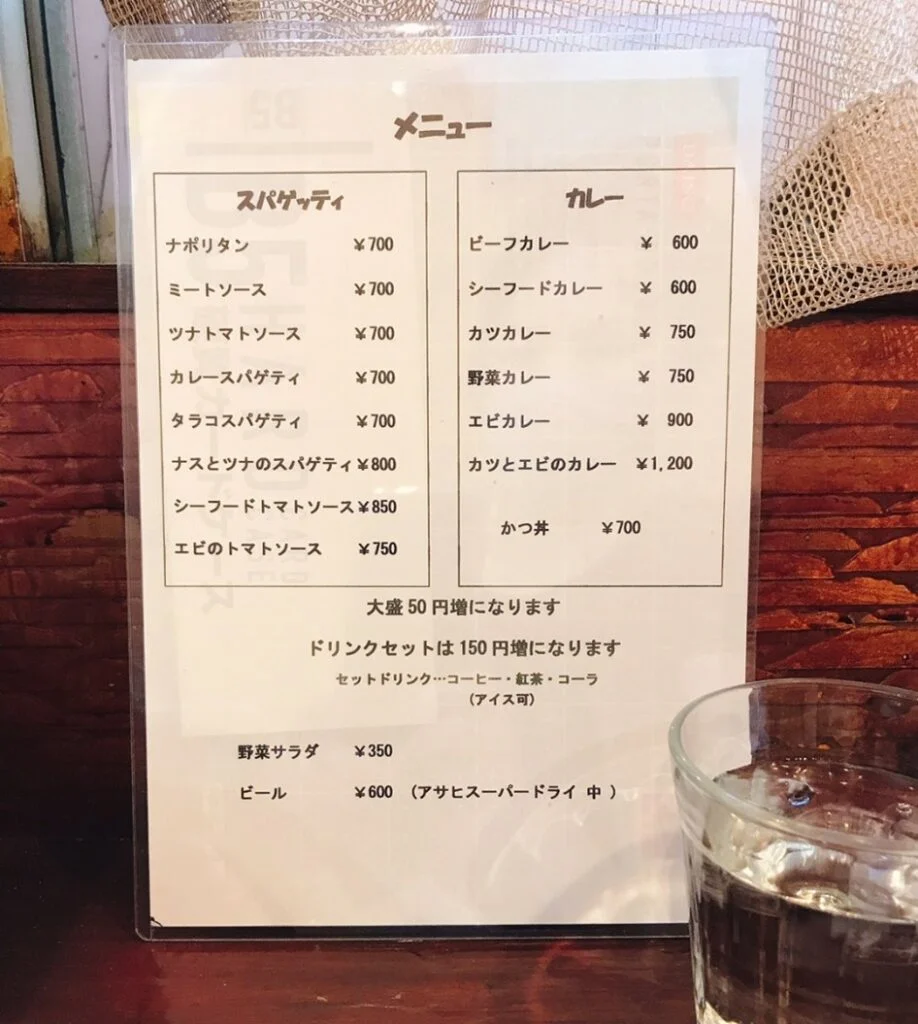 メニュー
スパゲッティ
ナポリタン ¥700
ミートソース ¥700
ツナトマトソース ¥700
カレースパゲティ ¥700
タラコスパゲティ ¥700
ナスとツナのスパゲティ ¥800
シーフードトマトソース ¥850
エビのトマトソース ¥750
カレー
ビーフカレー ¥ 600
シーフードカレー ¥ 600
カツカレー ¥ 750
野菜カレー ¥ 750
エビカレー ¥ 900
カツとエビのカレー ¥1,200
かつ丼 ¥700
大盛50円増になります
ドリンクセットは150円増になります
セットドリンク…コーヒー・紅茶・コーラ
（アイス可）
野菜サラダ ¥350
ビール ¥600 （アサヒスーパードライ 中 ）